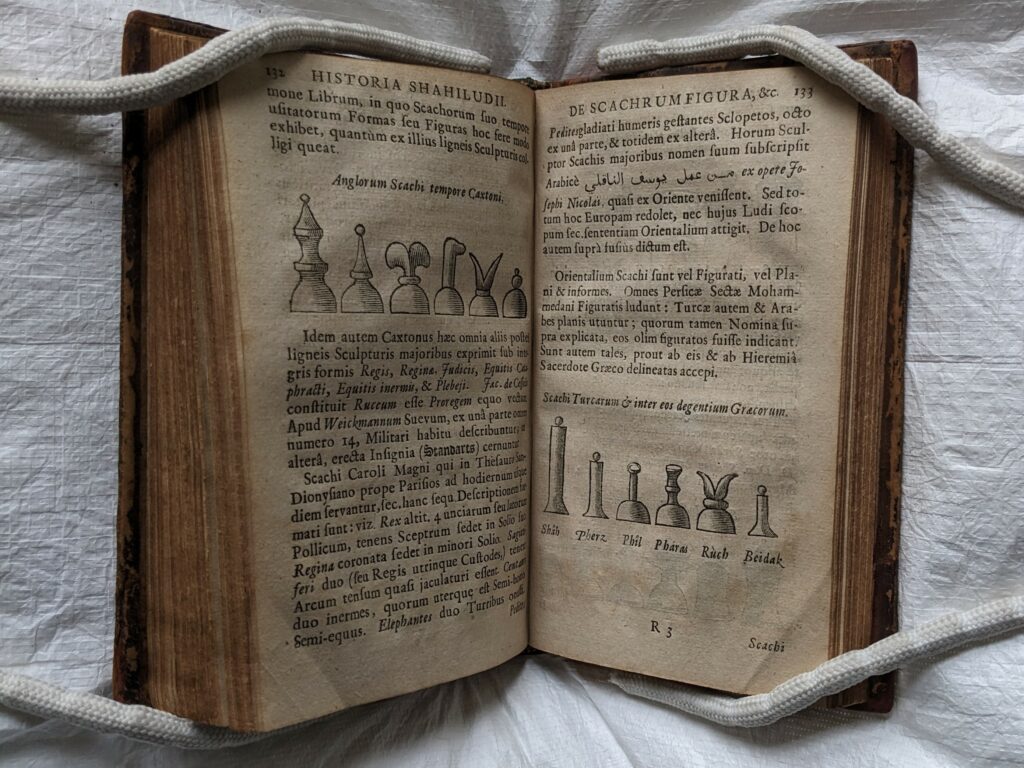 132 HISTORIA SHAHILUDII.
mone Librum, in quo Scachorum suo tempore
usitatorum Formas seu Figuras hoc fere modo
exhibet, quantùm ex illius ligneis Sculpturis col-
ligi queat.
Anglorum Scachi tempore Caxtoni.
Idem autem Caxtonus hæc omnia aliis postea
ligneis Sculpturis majoribus exprimit sub inte-
gris formis Regis, Reginæ, Judicis, Equitis Ca-
phracti, Equitis inermis, & Plebeji. Jac. de Cesolis
constituit Ruccum esse Proregem equo vectum.
Apud Weickmannum Suevum, ex unâ parte omnes
numero 14, Militari habitu describuntur; in
alterâ, erecta Insignia (Standarts) cernuntur.
Scachi Caroli Magni qui in Thesauro San-
Dionysiano prope Parisios ad hodiernum usque
diem servantur, sec. hanc sequ. Descriptionem for-
mati sunt: viz. Rex altit. 4 unciarum seu latorum
Pollicum, tenens Sceptrum sedet in Solio suo.
Regina coronata sedet in minori Solio. Sagitti-
feri duo (seu Regis utrinque Custodes,) tenent
Arcum tensum quasi jaculaturi essent. Centauri
duo inermes, quorum uterque est Semi-homo
Semi-equus. Elephantes duo Turribus onusti.
Pedites
DE SCACHRUM FIGURA, &c. 133
Pedites gladiati humeris gestantes Sclopetos, octo
ex unâ parte, & totidem ex alterâ. Horum Scul-
ptor Scachis majoribus nomen suum subscripsit
Arabicè من عمل يوسف الناقلي ex opere Jo-
sephi Nicolai, quasi ex Oriente venissent. Sed to-
tum hoc Europam redolet, nec hujus Ludi sco-
pum sec. sententiam Orientalium attigit. De hoc
autem suprà fusiùs dictum est.
Orientalium Scachi sunt vel Figurati, vel Pla-
ni & informes. Omnes Persicæ Sectæ Moham-
medani Figuratis ludunt: Turcæ autem & Ara-
bes planis utuntur; quorum tamen Nomina su-
pra explicata, eos olim figuratos fuisse indicant.
Sunt autem tales, prout ab eis & ab Hieremiâ
Sacerdote Græco delineatas accepi.
Scachi Turcarum & inter eos degentium Græcorum.
Shâh Pherz Phîl Pharas Rùch Beidak
R 3
Scachi